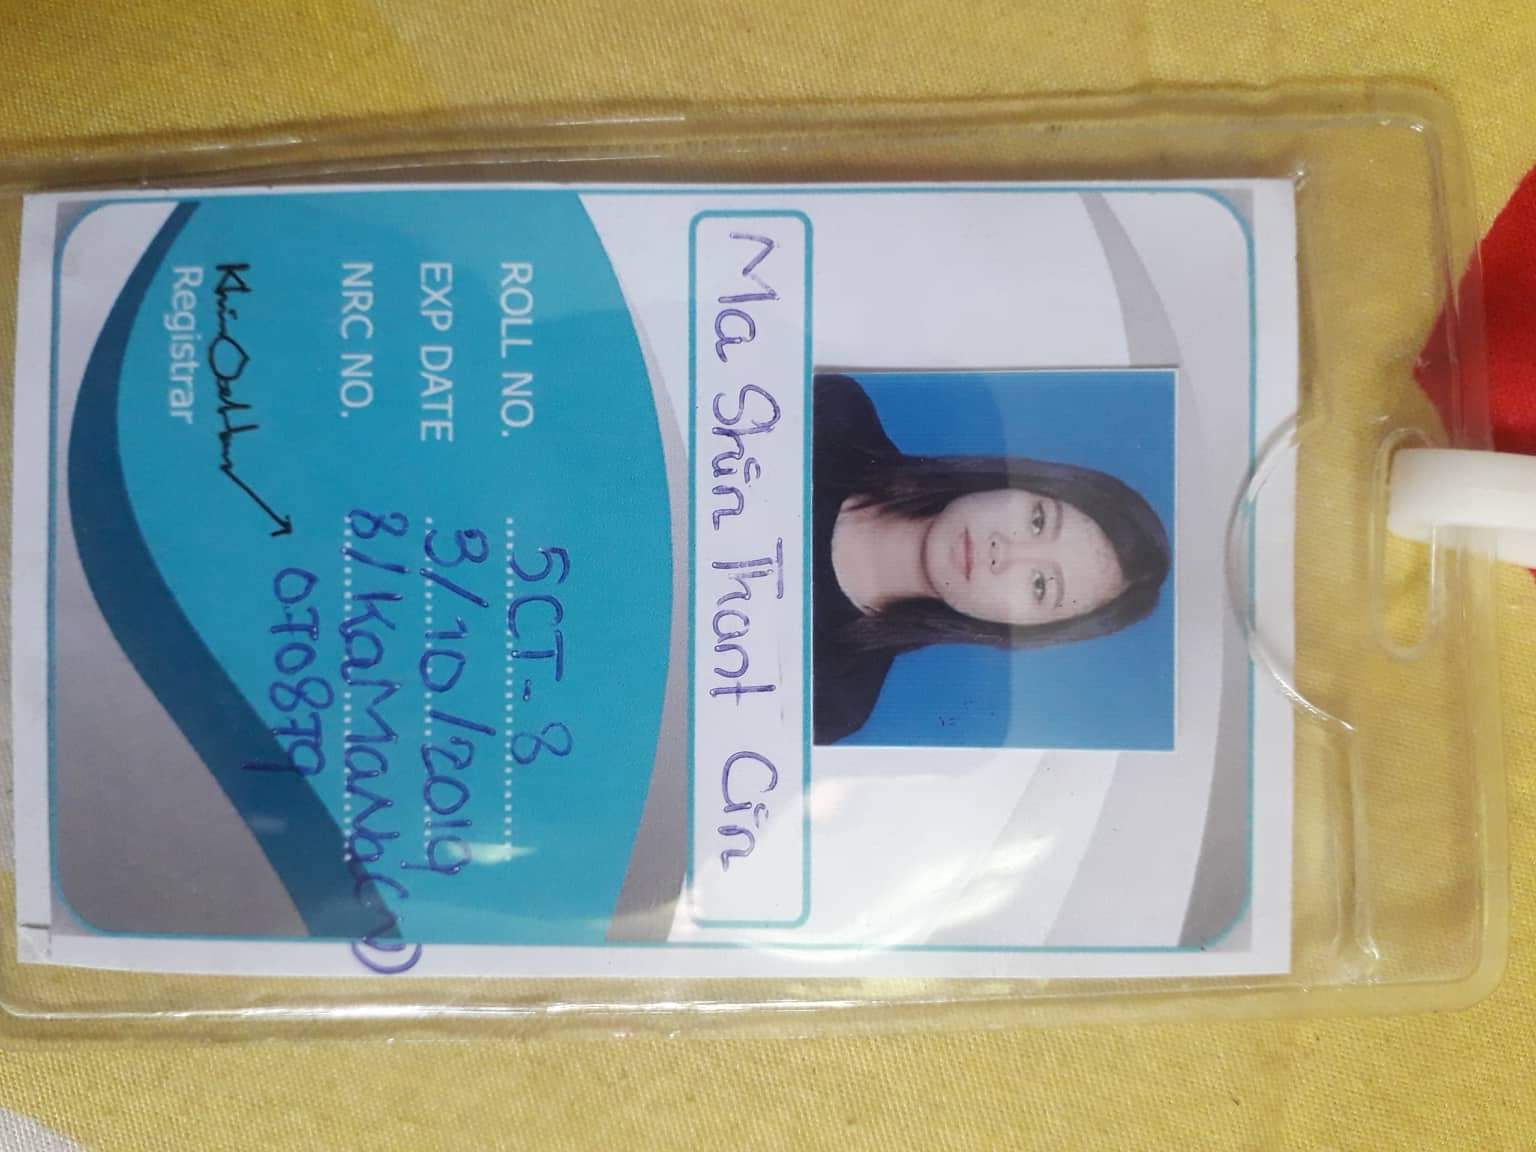 Ma Shin Thant Cin
ROLL NO. 5CT-8
EXP DATE 3/10/2019
NRC NO. 8/KaMaNa(N)
070879
Registrar